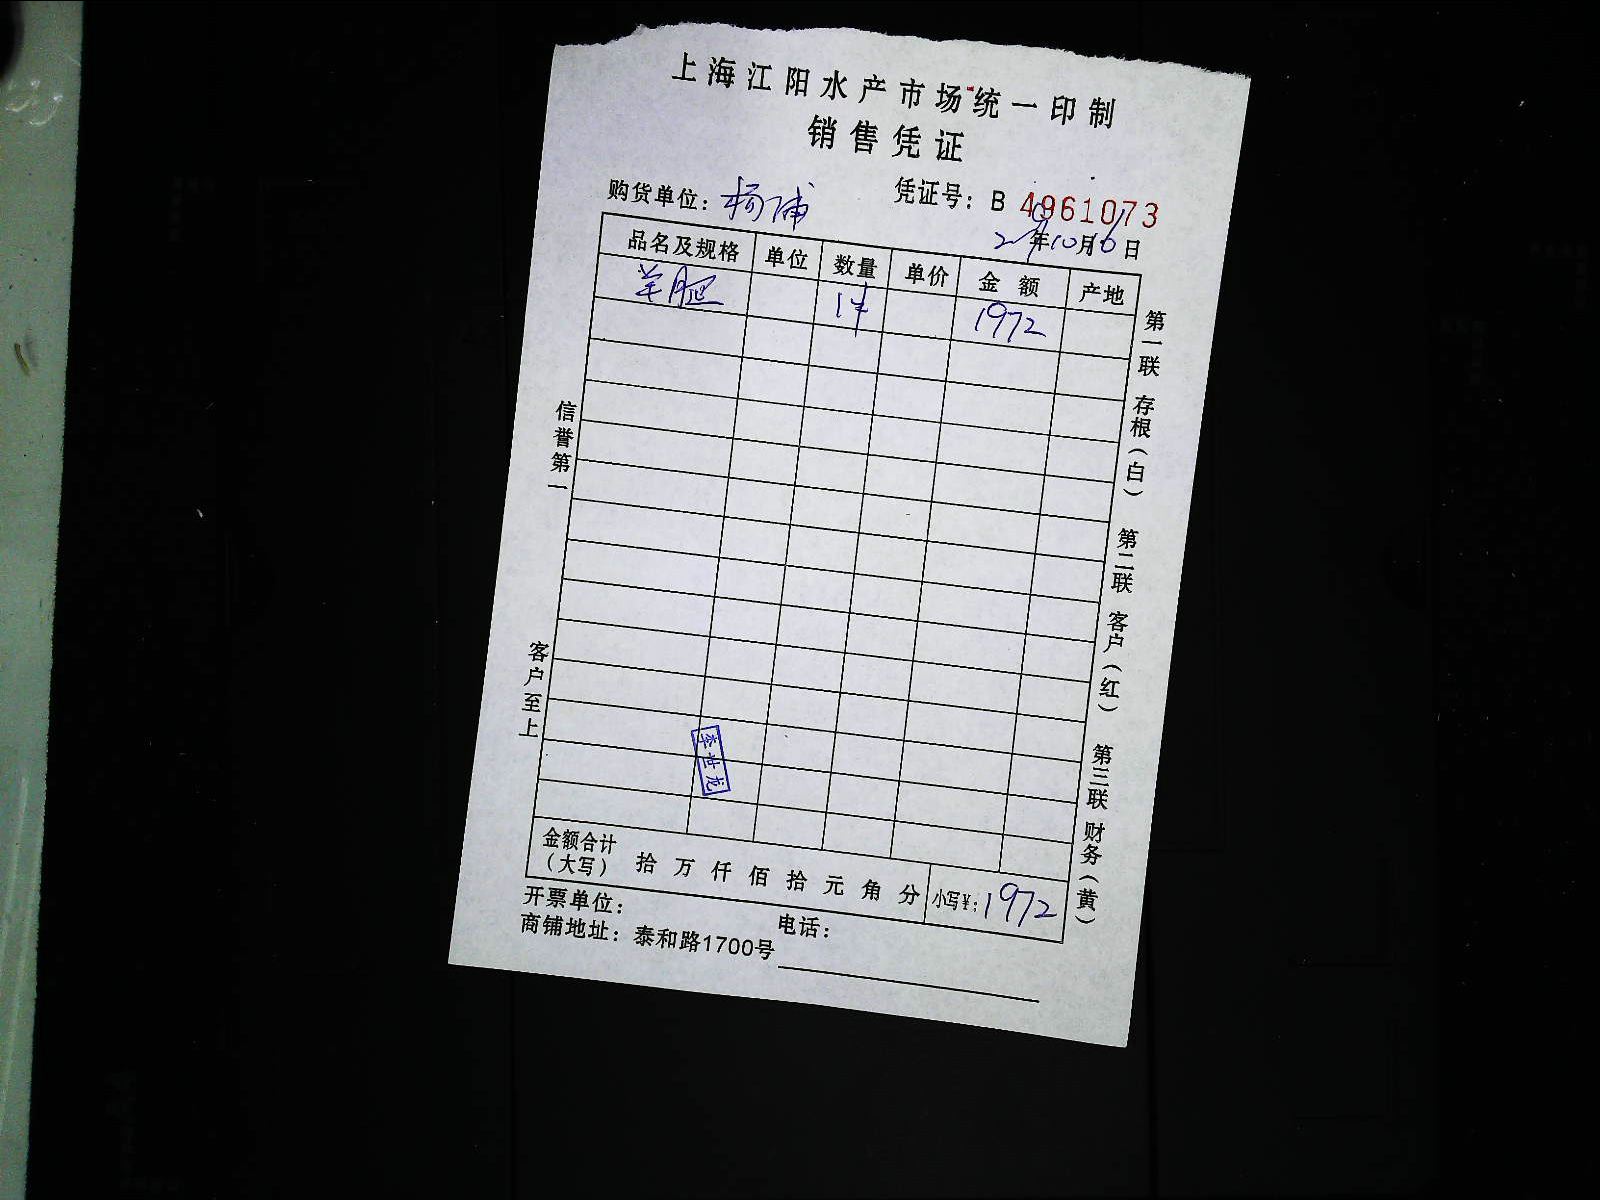 上海江阳水产市场统一印制
销售凭证
购货单位：杨浦
凭证号：B 4961073
年10月16日
品名及规格 单位 数量 单价 金额 产地
羊腿 1件 1972
信誉第一
客户至上
第一联 存根（白） 第二联 客户（红） 第三联 财务（黄）
李世龙
金额合计（大写） 拾 万 仟 佰 拾 元 角 分 小写¥：1972
开票单位：
电话：
商铺地址：泰和路1700号